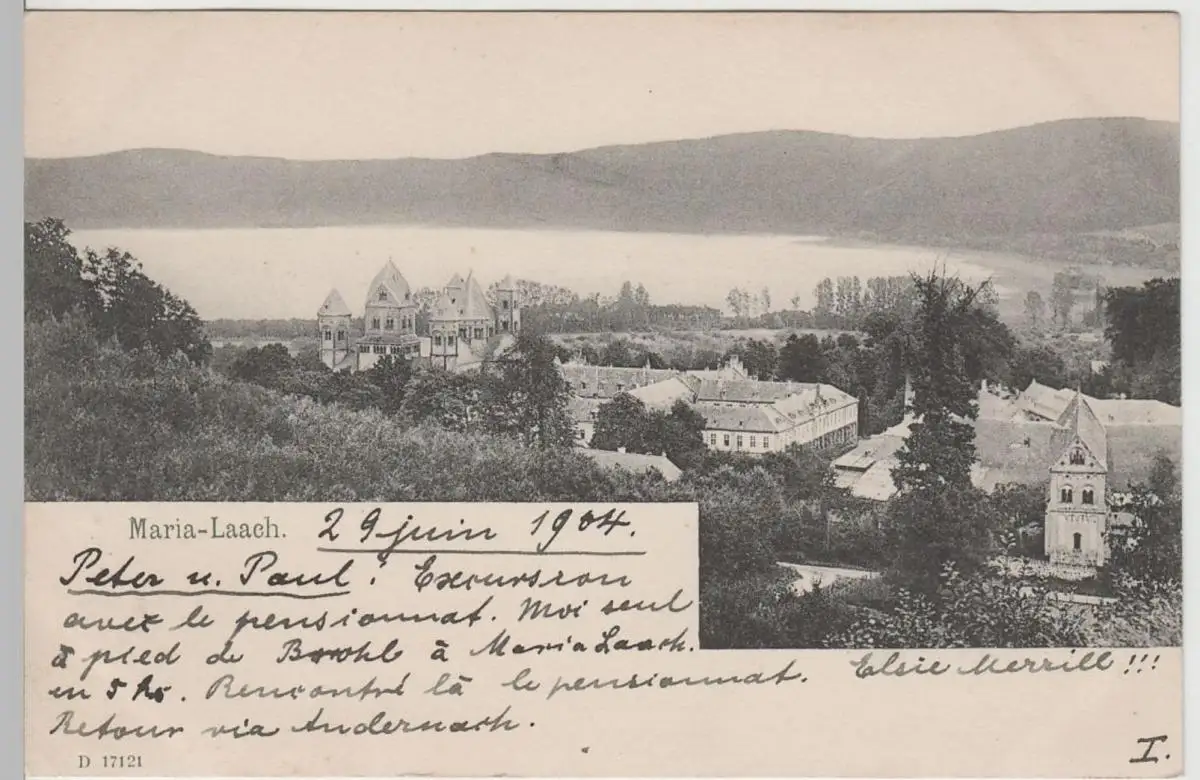 Maria-Laach. 29 juin 1904.
Peter u. Paul! Excursion
avec le pensionnat. Moi seul
à pied de Brohl à Maria Laach.
en 5 hs. Rencontré là le pensionnat. Elsie Merrill!!!
Retour via Andernach.
D 17121
I.